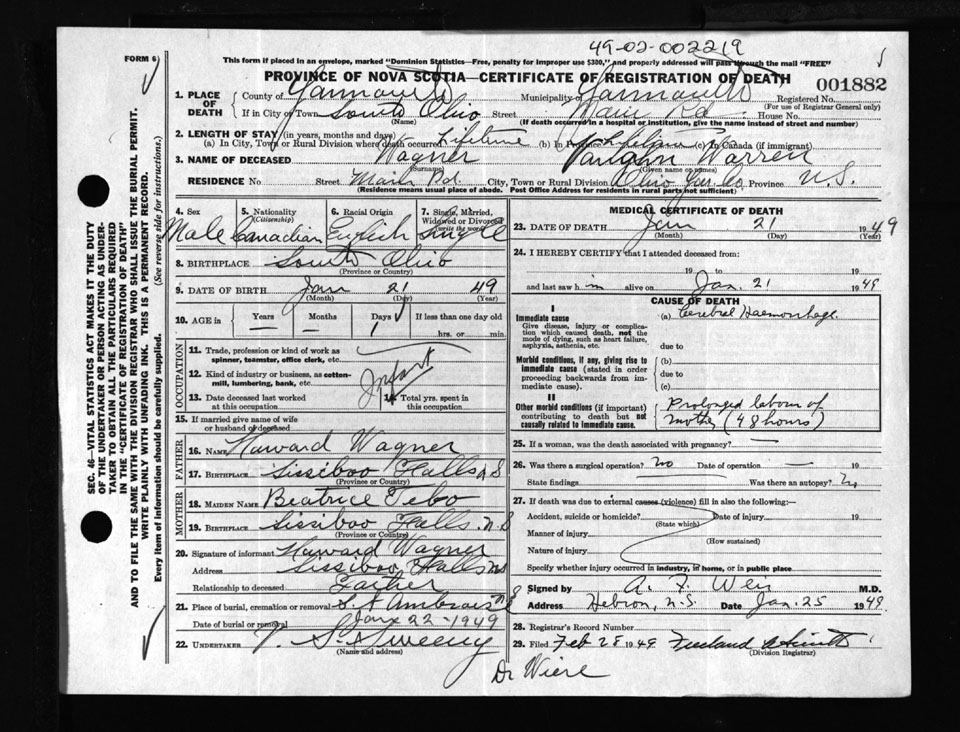 49-02-002219
FORM 6
This form if placed in an envelope, marked "Dominion Statistics—Free, penalty for improper use $300," and properly addressed will pass through the mail "FREE"
PROVINCE OF NOVA SCOTIA—CERTIFICATE OF REGISTRATION OF DEATH
001882
1. PLACE OF DEATH
County of Yarmouth Municipality of Yarmouth Registered No.
(For use of Registrar General only)
If in City or Town South Ohio Street Main Rd. House No.
(Name) (If death occurred in a hospital or institution, give the name instead of street and number)
2. LENGTH OF STAY (in years, months and days)
(a) In City, Town or Rural Division where death occurred Lifetime (b) In Province Lifetime (c) In Canada (if immigrant)
3. NAME OF DECEASED Wagner Vaughn Warren
(Surname) (Given name or names)
RESIDENCE No. Street Main Rd. City, Town or Rural Division Ohio Yar. Co Province N.S.
Residence means usual place of abode. Post Office Address for residents in rural parts not sufficient)
4. Sex Male
5. Nationality (Citizenship) Canadian
6. Racial Origin English
7. Single, Married, Widowed or Divorced (write the word) Single
8. BIRTHPLACE South Ohio
(Province or Country)
9. DATE OF BIRTH Jan 21 49
(Month) (Day) (Year)
10. AGE in Years — Months — Days 1 If less than one day old
hrs. or min.
OCCUPATION
11. Trade, profession or kind of work as spinner, teamster, office clerk, etc.
12. Kind of industry or business, as cotton-mill, lumbering, bank, etc. Infant
13. Date deceased last worked at this occupation
14. Total yrs. spent in this occupation
15. If married give name of wife or husband of deceased
FATHER
16. NAME Howard Wagner
17. BIRTHPLACE Sissiboo Falls N S
(Province or Country)
MOTHER
18. MAIDEN NAME Beatrice Tebo
19. BIRTHPLACE Sissiboo Falls N.S
(Province or Country)
20. Signature of informant Howard Wagner
Address Sissiboo Falls NS
Relationship to deceased Father
21. Place of burial, cremation or removal St Ambrose N S
Date of burial or removal Jan 22-1949
22. UNDERTAKER V. S. Sweeny
(Name and address)
MEDICAL CERTIFICATE OF DEATH
23. DATE OF DEATH Jan 21 1949
(Month) (Day) (Year)
24. I HEREBY CERTIFY that I attended deceased from:
19 to 19
and last saw him alive on Jan. 21 1949
CAUSE OF DEATH
I
Immediate cause (a) Cerebral Haemorrhage.
Give disease, injury or complication which caused death, not the mode of dying, such as heart failure, asphyxia, asthenia, etc.
due to
Morbid conditions, if any, giving rise to immediate cause (stated in order proceeding backwards from immediate cause).
(b)
due to
(c)
II
Other morbid conditions (if important) contributing to death but not causally related to immediate cause.
Prolonged labour of
mother (48 hours)
25. If a woman, was the death associated with pregnancy? —
26. Was there a surgical operation? no Date of operation —
State findings Was there an autopsy? no
27. If death was due to external causes (violence) fill in also the following:—
Accident, suicide or homicide? Date of injury 19
(State which)
Manner of injury
(How sustained)
Nature of injury
Specify whether injury occurred in industry, in home, or in public place
Signed by A. F. Weir M.D.
Address Hebron, N.S. Date Jan. 25 1949
28. Registrar's Record Number
29. Filed Feb 28 1949 Freeland
(Division Registrar)
Dr Wiere
SEC. 46—VITAL STATISTICS ACT MAKES IT THE DUTY OF THE UNDERTAKER OR PERSON ACTING AS UNDERTAKER TO OBTAIN ALL THE PARTICULARS REQUIRED IN THE "CERTIFICATE OF REGISTRATION OF DEATH" AND TO FILE THE SAME WITH THE DIVISION REGISTRAR WHO SHALL ISSUE THE BURIAL PERMIT.
WRITE PLAINLY WITH UNFADING INK. THIS IS A PERMANENT RECORD.
Every item of information should be carefully supplied. (See reverse side for instructions.)